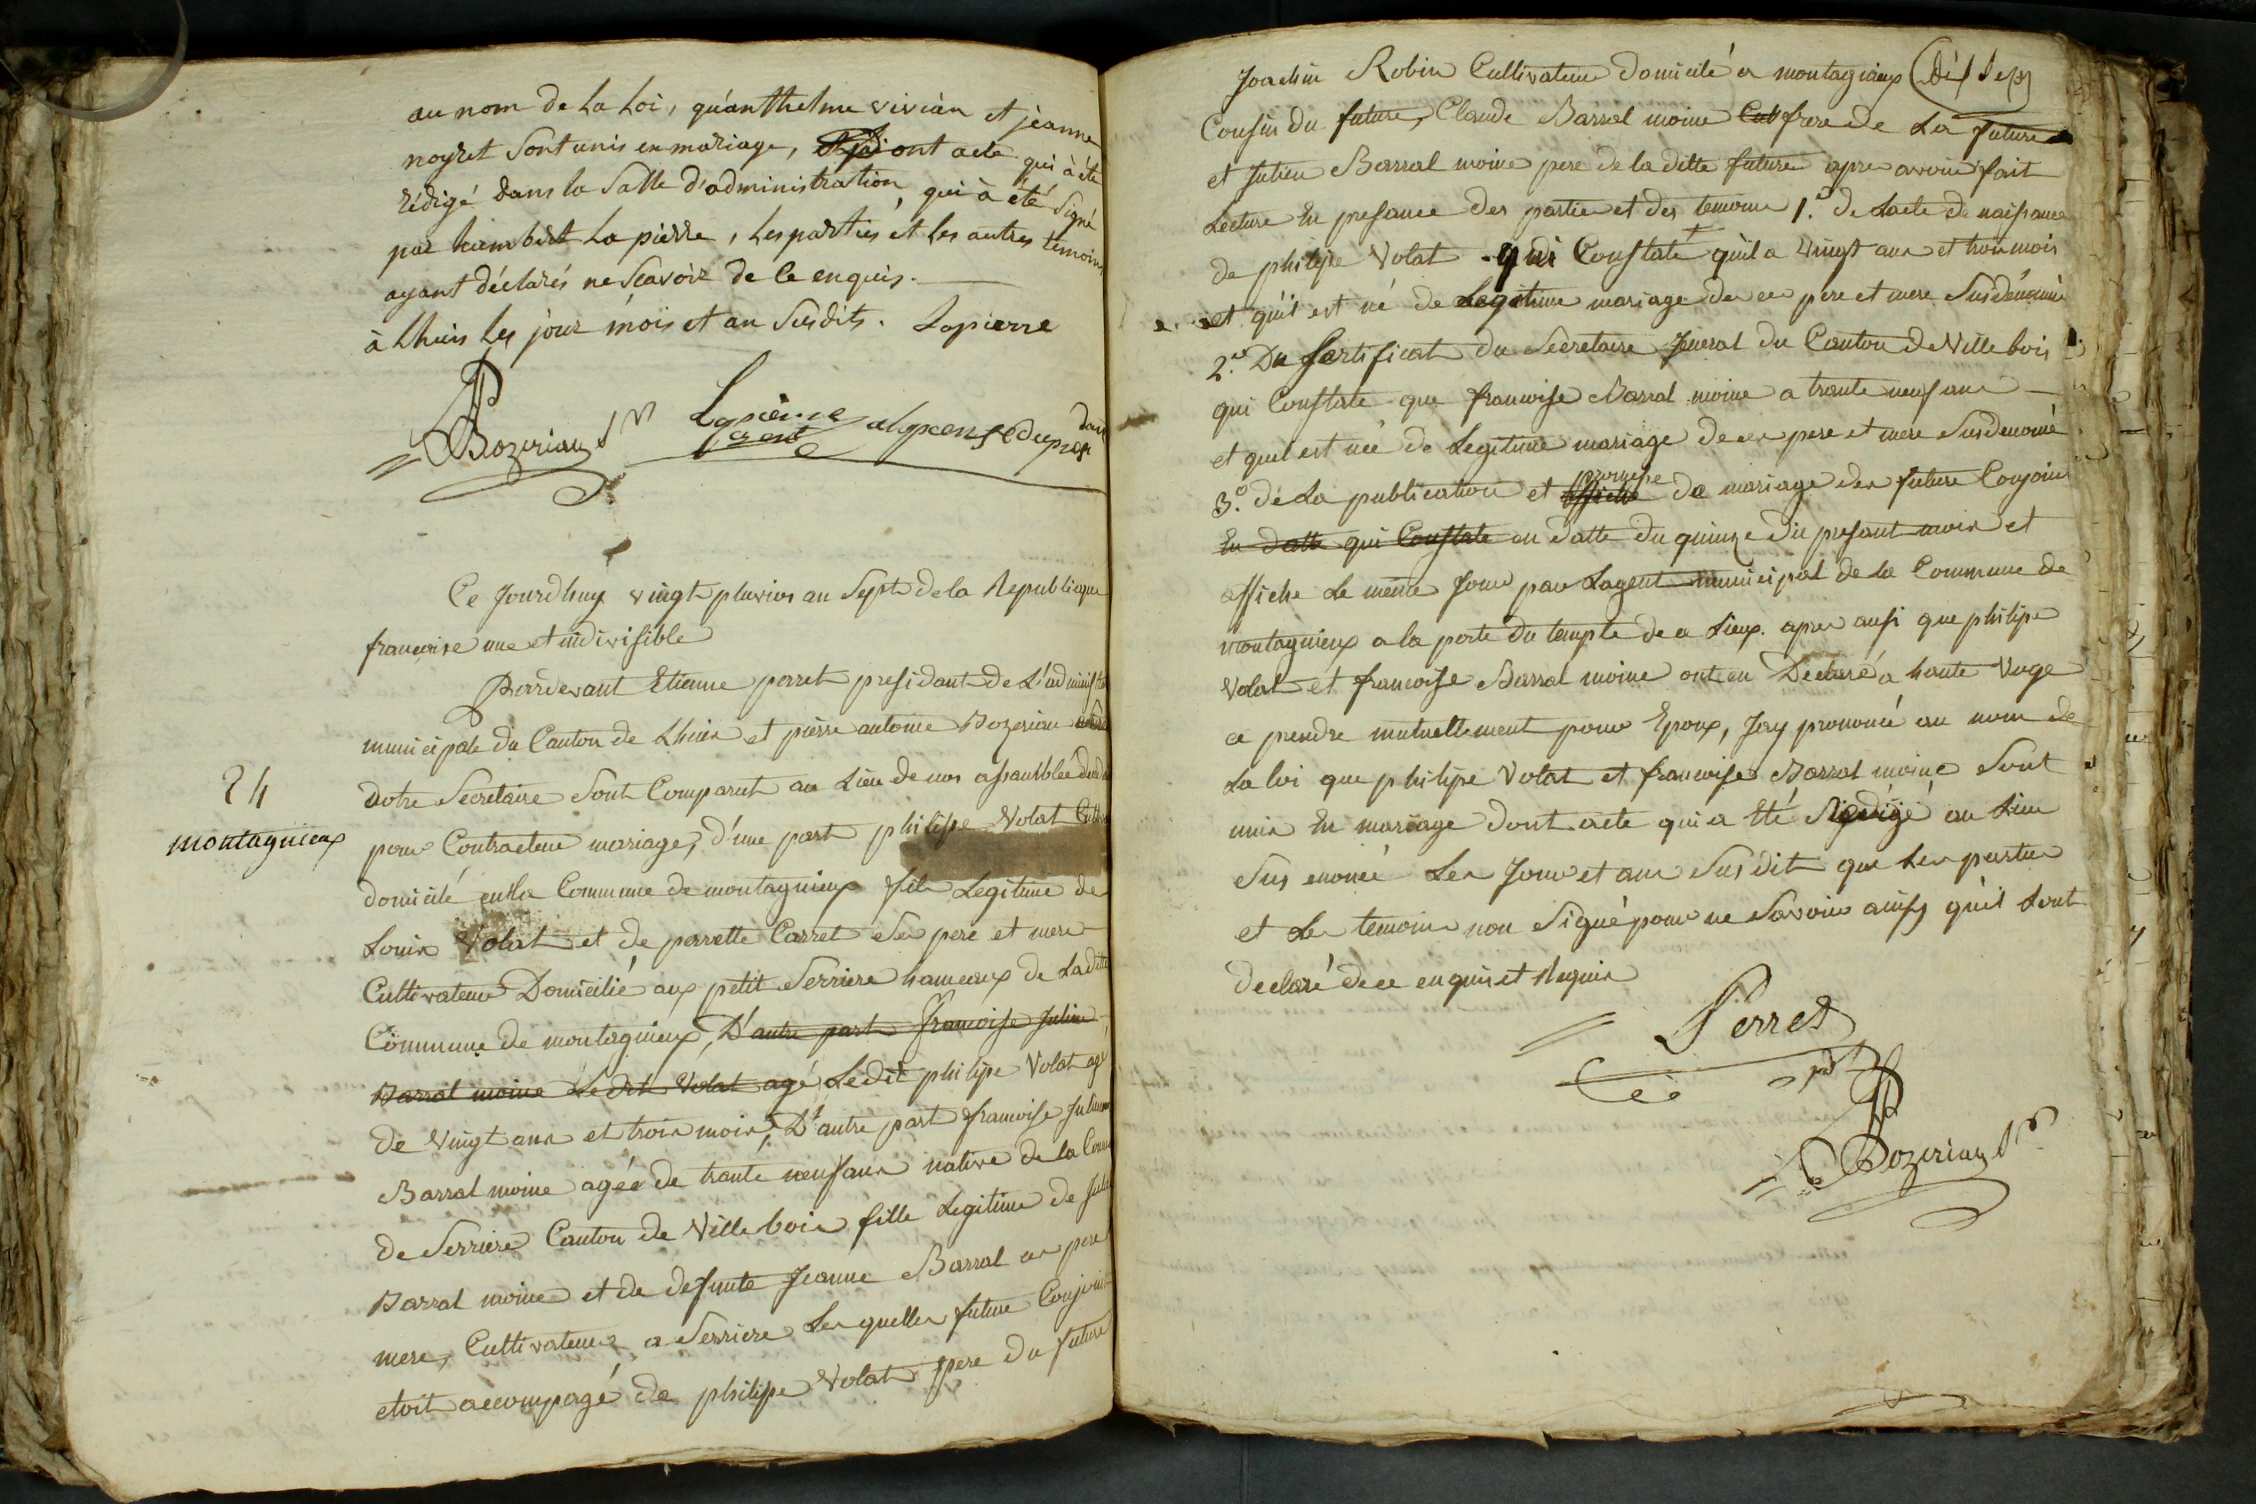 au nom de la Loi, qu'anthelme vivian et jeanne
noyret Sont unis en mariage, dont acte qui à été
rédigé dans la Salle d'administration, qui à été Signé
par humbert La pierre, les partiés et les autres témoins
ayant déclarés ne Scavoir de ce enquis.
à Lhuis les jour mois et an Susdits. Lapierre
Bozerian Sre Lapierre agent
Ce Jourdhuy vingt pluvios an Sept de la Republique
francoise une et indivisible
Pardevant Etienne perret presidant de L'administ
municipale du Canton de Lhuis et pierre antoine Bozerian
Dotre Secretaire Sont Comparut au Lieu de nos assamblée
24
montagnieux
pour Contracteur mariage, d'une part philipe Volat Cultiv
domicilé en la Commune de montagnieux fils Legitime de
Louis Volat et de perrette Carret Ses pere et mere
Cultivateur Domicilié aux petit Serriere hameaux de Ladite
Commune de montagnieux, D'autre part francoise Julien
Barral moine Ledit Volat agé Ledit philipe Volat agé
de vingt ans et trois mois, D'autre part francoise Julienne
Barral moine agée de trante neuf ans native de la Comm
de Serriere Canton de Villebois fille Legitime de Julien
Barral moine et de defunte Jeanne Barral ces pere
mere, Cultivateur a Serriere Les quelles future Conjoint
etoit accompagé de philipe Volat pere du future
Joachin Robin Cultivateur domicilé a montagnieux
Cousin du future, Claude Barral moine Cult frere de La future
et Julien Barral moine pere de la ditte future apre avoir fait
Lecture En presance des partie et des temoins 1.o de Lacte de naissance
de philipe Volat qui Constate quil a vingt ans et trois mois
et qu'il est né de Legitime mariage de ce pere et mere Susdénomé
2.o Du Certificat du Secretaire Jeneral du Canton de Ville bois
qui Constate que francoise Barral moine a trante neuf ans
et quel est née de Legitime mariage de ces pere et mere Susdenomé
3.o de La publication et affiche promesse de mariage des future Conjoint
En datte qui Constate en datte du quinze du presant mois et
affiche Le meme Jour par Lagent municipal de la Commune de
montagnieux a la porte du temple de ce Lieux. apres ausi que philipe
Volat et francoise Barral moine ont eu Declaré a haute Voye
ce prendre mutuellement pour Epoux, Jay prononcé au nom de
La loi que philipe Volat et francoise Barral moine Sont
unis En mariage dont acte qui a Eté Redigé au Lieu
Sus enoncé Les Jour et ans Susdit que Les parties
et Les temoins non Signé pour ne Savoir ainsy qu'il Sont
declaré de ce enquis et Requis
Perret
pdt
Bozerian Sre